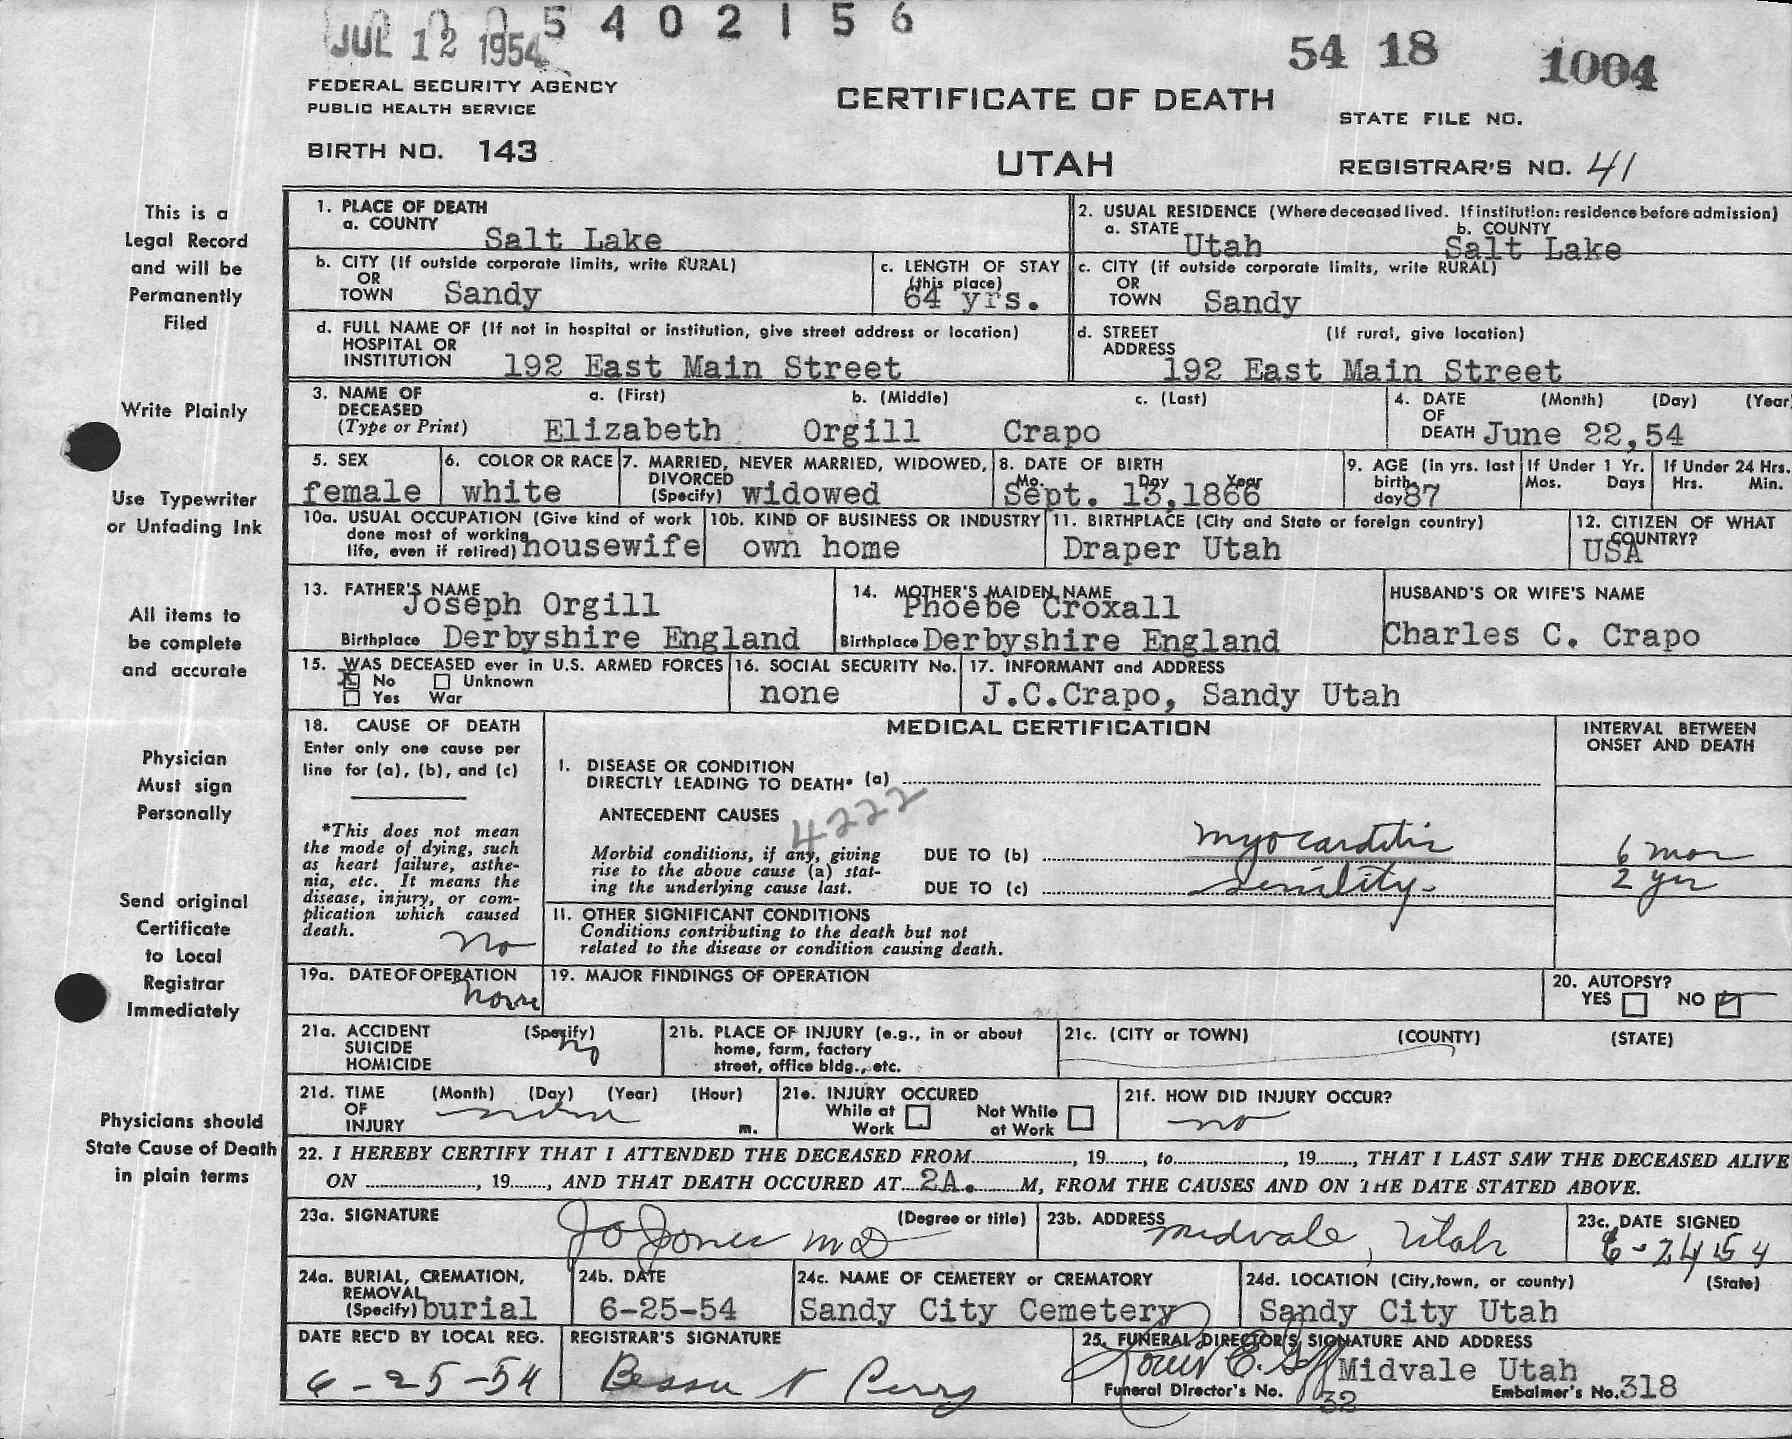 JUL 12 1954
5 4 0 2 1 5 6
54 18 1004
FEDERAL SECURITY AGENCY
PUBLIC HEALTH SERVICE
CERTIFICATE OF DEATH
STATE FILE NO.
BIRTH NO. 143
UTAH
REGISTRAR'S NO. 41
This is a
Legal Record
and will be
Permanently
Filed
Write Plainly
Use Typewriter
or Unfading Ink
All items to
be complete
and accurate
Physician
Must sign
Personally
Send original
Certificate
to Local
Registrar
Immediately
Physicians should
State Cause of Death
in plain terms
1. PLACE OF DEATH
a. COUNTY Salt Lake
2. USUAL RESIDENCE (Where deceased lived. If institution: residence before admission)
a. STATE Utah b. COUNTY Salt Lake
b. CITY (If outside corporate limits, write RURAL)
OR
TOWN Sandy
c. LENGTH OF STAY
(this place)
64 yrs.
c. CITY (if outside corporate limits, write RURAL)
OR
TOWN Sandy
d. FULL NAME OF (If not in hospital or institution, give street address or location)
HOSPITAL OR
INSTITUTION 192 East Main Street
d. STREET (If rural, give location)
ADDRESS
192 East Main Street
3. NAME OF a. (First) b. (Middle) c. (Last)
DECEASED
(Type or Print) Elizabeth Orgill Crapo
4. DATE (Month) (Day) (Year
OF
DEATH June 22,54
5. SEX
female
6. COLOR OR RACE
white
7. MARRIED, NEVER MARRIED, WIDOWED,
DIVORCED
(Specify) widowed
8. DATE OF BIRTH
Mo. Day Year
Sept. 13,1866
9. AGE (in yrs. last
birth-
day 87
If Under 1 Yr.
Mos. Days
If Under 24 Hrs.
Hrs. Min.
10a. USUAL OCCUPATION (Give kind of work
done most of working
life, even if retired) housewife
10b. KIND OF BUSINESS OR INDUSTRY
own home
11. BIRTHPLACE (City and State or foreign country)
Draper Utah
12. CITIZEN OF WHAT
COUNTRY?
USA
13. FATHER'S NAME
Joseph Orgill
Birthplace Derbyshire England
14. MOTHER'S MAIDEN NAME
Phoebe Croxall
Birthplace Derbyshire England
HUSBAND'S OR WIFE'S NAME
Charles C. Crapo
15. WAS DECEASED ever in U.S. ARMED FORCES
X No Unknown
Yes War
16. SOCIAL SECURITY No.
none
17. INFORMANT and ADDRESS
J.C.Crapo, Sandy Utah
18. CAUSE OF DEATH
Enter only one cause per
line for (a), (b), and (c)
*This does not mean
the mode of dying, such
as heart failure, asthe-
nia, etc. It means the
disease, injury, or com-
plication which caused
death.
no
MEDICAL CERTIFICATION
INTERVAL BETWEEN
ONSET AND DEATH
I. DISEASE OR CONDITION
DIRECTLY LEADING TO DEATH* (a)
ANTECEDENT CAUSES
4222
Morbid conditions, if any, giving
rise to the above cause (a) stat-
ing the underlying cause last.
DUE TO (b) myocarditis 6 mos
DUE TO (c) senility 2 yrs
II. OTHER SIGNIFICANT CONDITIONS
Conditions contributing to the death but not
related to the disease or condition causing death.
19a. DATE OF OPERATION
none
19. MAJOR FINDINGS OF OPERATION
20. AUTOPSY?
YES NO
21a. ACCIDENT (Specify)
SUICIDE no
HOMICIDE
21b. PLACE OF INJURY (e.g., in or about
home, farm, factory
street, office bldg., etc.
21c. (CITY or TOWN) (COUNTY) (STATE)
21d. TIME (Month) (Day) (Year) (Hour)
OF
INJURY m.
21e. INJURY OCCURED
While at Not While
Work at Work
21f. HOW DID INJURY OCCUR?
no
22. I HEREBY CERTIFY THAT I ATTENDED THE DECEASED FROM , 19 , to , 19 , THAT I LAST SAW THE DECEASED ALIVE
ON , 19 , AND THAT DEATH OCCURED AT 2A. M, FROM THE CAUSES AND ON THE DATE STATED ABOVE.
23a. SIGNATURE (Degree or title)
Jo Jones MD
23b. ADDRESS
Midvale, Utah
23c. DATE SIGNED
6-24 54
24a. BURIAL, CREMATION,
REMOVAL
(Specify) burial
24b. DATE
6-25-54
24c. NAME OF CEMETERY or CREMATORY
Sandy City Cemetery
24d. LOCATION (City, town, or county) (State)
Sandy City Utah
DATE REC'D BY LOCAL REG.
6-25-54
REGISTRAR'S SIGNATURE
Perry
25. FUNERAL DIRECTOR'S SIGNATURE AND ADDRESS
E. Goff Midvale Utah
Funeral Director's No. 32 Embalmer's No. 318